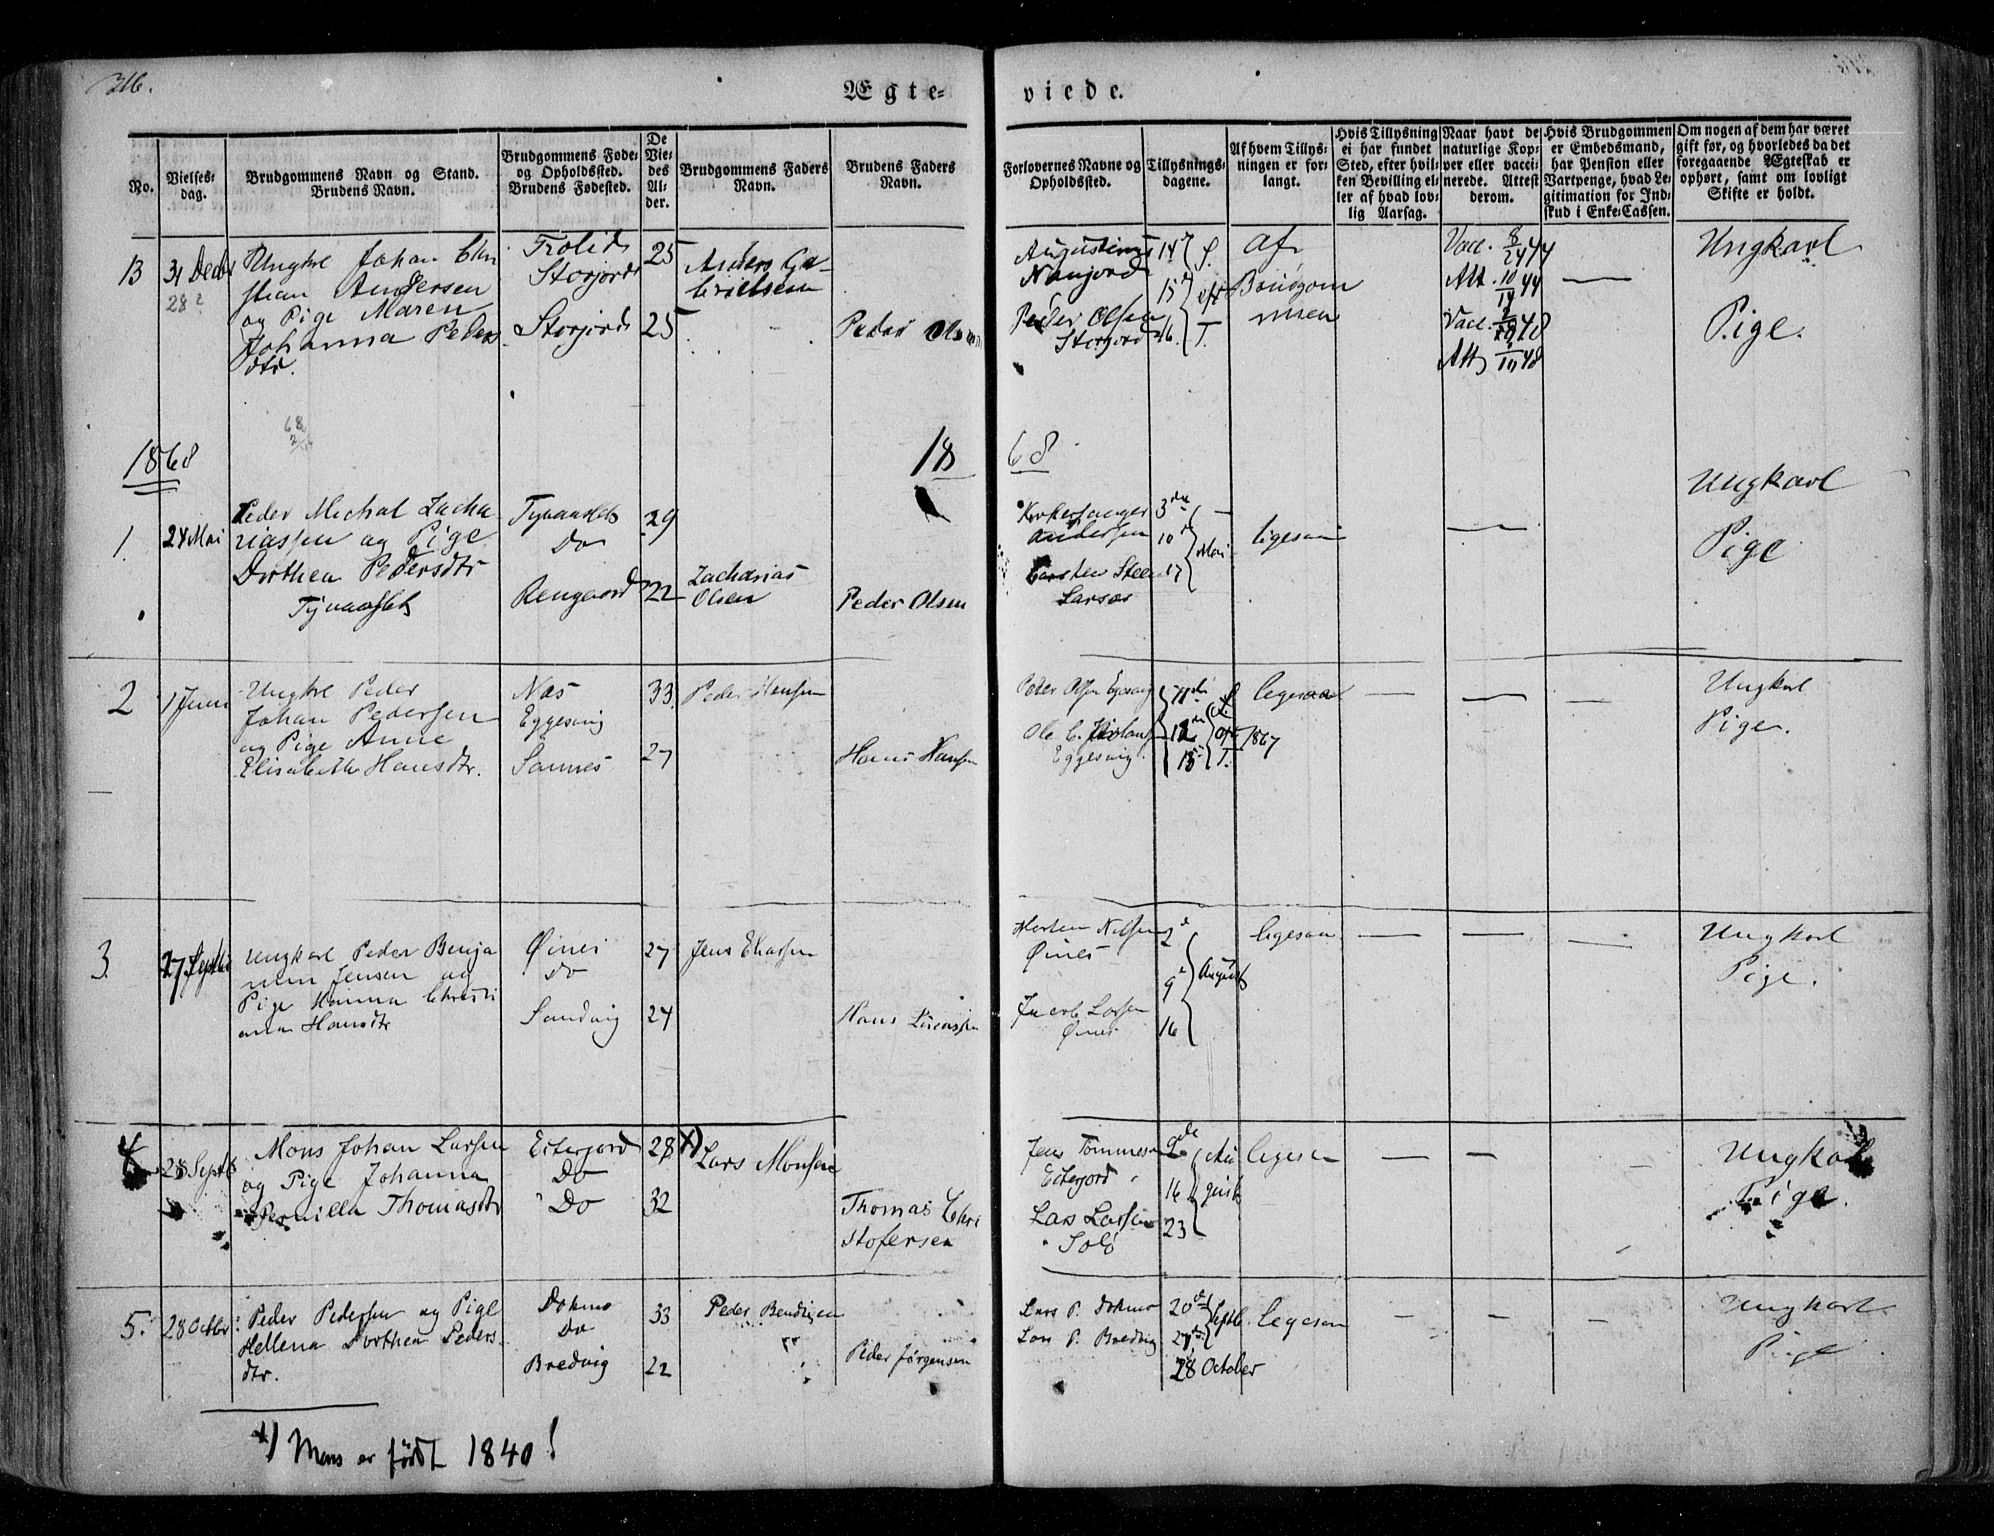 316.
Ægte-
viede.
No.
Vielses-
dag.
Brudgommens Navn og Stand.
Brudens Navn.
Brudgommens Føde-
og Opholdssted.
Brudens Fødested.
De
Vie-
des
Al-
der.
Brudgommens Faders
Navn.
Brudens Faders
Navn.
Forlovernes Navne og
Opholdssted.
Tillysnings-
dagene.
Af hvem Tillys-
ningen er for-
langt.
Hvis Tillysning
ei har fundet
Sted, efter hvil-
ken Bevilling el-
ler af hvad lov-
lig Aarsag.
Naar havt de
naturlige Kop-
per eller vacci-
nerede. Attest
derom.
Hvis Brudgommen
er Embedsmand,
har Pension eller
Vartpenge, hvad Le-
gitimation for Ind-
skud i Enke-Cassen.
Om nogen af dem har været
gift før, og hvorledes da det
foregaaende Ægteskab er
ophørt, samt om lovligt
Skifte er holdt.
13
31 Decbr
28?
Ungkl Johan Chri
stian Andersen
og Pige Maren
Johanna Peders
dtr.
Storjord
Storjord
25
25
Anders Ga-
brielsen
Peder Olsen
Augustinus
Naujord
Peder Olsen
Storjord
14
15
26.
S.
eft
T.
af
Brudgom
men
Vacc. 8/24 44
Att. 10/14 44
Att
Ungkarl
Pige.
1868
18
68
1.
24 Mai
Peder Michal Zacha
riassen og Pige
Dorthea Pedersdtr
Tyvaaslet
Tyvaaslet
Do
Rengaard
29
22
Zacharias
Olsen
Peder Olsen
Kirkesanger
Andersen
Carsten Steen
Larsos
3
10
17
Mai
ligesaa
—
Ungkarl
Pige
2
1 Juni
Ungkl Peder
Johan Pedersen
og Pige Anne
Elisabeth Hansdtr.
Næs
Eggesvig
Sannes
33
27
Peder Hansen
Hans Hansen
Peder Olsen Egesvig
Ole C.
Eggesvig
11
12
15
S.
T.
1867
ligesaa
—
—
—
Ungkal
Pige.
3.
27 Septbr
Ungkarl Peder Benja
min Jensen og
Pige Hanna Christi
ana Hansdtr
Øines
do
Sandvig
27
24
Jens Eliassen
Hans Lucassen
Morten Nilsen
Øines
Jacob Larsen
Øines
2
9
16
August
ligesaa
—
—
—
—
Ungkarl
Pige.
4
28 Septb
Mons Johan Larsen
og Pige Johanna
Pernilla Thomasdtr
Esterjord
Do
Do
28 x)
32
Lars Monsen
Thomas Chri
stofersen
Jens Tommesen
Esterjord
Lars Larsen
Solø
9de
16
23
Au
gust
ligesaa
—
—
—
—
Ungkarl
Pige.
5.
28 Octbr
Peder Pedersen og Pige
Hellena Dorthea Peders
dtr.
Dokmo
Do
Bredvig
33
22
Peder Bendixen
Peder Jørgensen
Lars P. Dokmo
Lars P. Bredvig
20
27
28 October
Septb.
ligesaa
—
—
—
—
Ungkarl
Pige
x) Mons er født 1840!